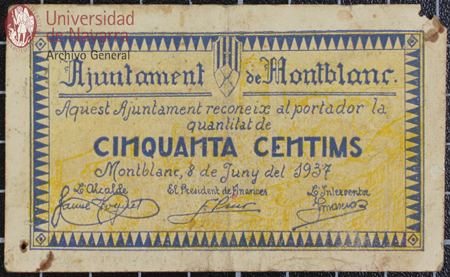 Universidad
de Navarra
Archivo General
Ajuntament de Montblanc.
Aquest Ajuntament reconeix al portador la
quantitat de
CINQUANTA CENTIMS
Montblanc, 8 de Juny del 1937
L'Alcalde El President de Finances L'Interventor